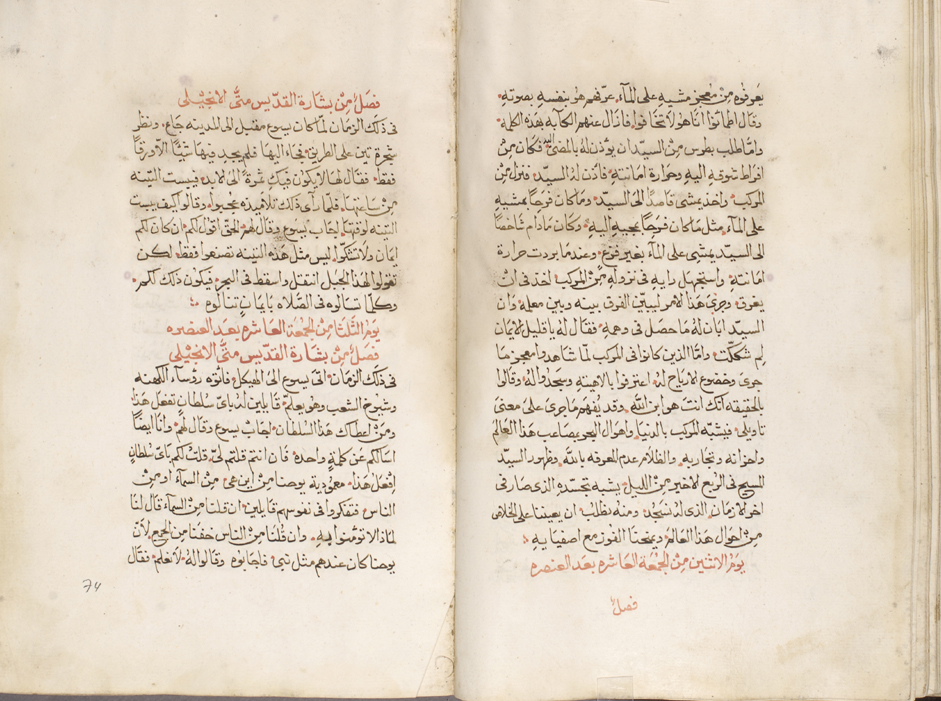 يعرفوه من معجز مشيه على المآء عرّفهم هو بنفسه بصوته
وقال اطمانوا انا هو لا تخافوا فازال عنهم الكآبه بهذه الكلمة
وامّا طلب بطرس من السيّد ان يوذن له بالمضى اليه فكان من
افراط شوقه اليه وحرارة امانته فاذن له السيّد فنزل من
الموكب واخذ يمشى قاصدًا الى السيّد وما كان فرحًا بمشيه
على المآء مثل ما كان فرحًا بمجيه اليه وكان ما دام شاخصًا
الى السيّد يمشى على المآء بغير فزع وعندما بردت حرارة
امانته واستجهل رايه فى نزوله من الموكب اخذ فى ان
يغرق وجرى هذا الامر ليبين الفرق بينه وبين معلمه وان
السيّد ابان له ما حصل فى وهمه فقال له يا قليل الايمان
لم شككت وامّا الذين كانوا فى الموكب لمّا شاهدوا معجز ما
جرى وخضوع الارياح له اعترفوا بالاهيته وسجدوا له وقالوا
بالحقيقه انك انت هو ابن الله وقد يفهم ما جرى على معنى
تاويلى فيشبه الموكب بالدنيا واهوال البحر بمصاعب هذا العالم
واحزانه وتجاربه والظلام عدم المعرفه بالله وظهور السيّد
المسيح فى الربع الاخير من الليل يشبه تجسّده الذى صار فى
اخر الازمان الذى له نسجد ومنه نطلب ان يعيننا على الخلاص
من اهوال هذا العالم ويمنحنا الفوز مع اصفيايه
يوم الاثنين من الجمعة العاشره بعد العنصره
فصل
فصل من بشارة القدّيس متّى الانجيلى
فى ذلك الزمان لمّا كان يسوع مقبل الى المدينه جاع ونظر
شجرة تين على الطريق فجاء اليها فلم يجد فيها شيئًا الّا ورقًا
فقط فقال لها لا يكون فيك ثمرة الى الابد فيبست التينه
من ساعتها فلمّا راى ذلك تلاميذه عجبوا وقالوا كيف يبست
التينه لوقتها اجاب يسوع وقال لهم الحق اقول لكم ان كان لكم
ايمان ولا تشكّوا ليس مثل هذه التينه تصنعوا فقط لكن
تقولوا لهذا الجبل انتقل واسقط فى البحر فيكون ذلك لكم
وكلّما تسالوه فى الصلاه بايمان تنالوه
يوم الثلثا من الجمعة العاشره بعد العنصره
فصل من بشارة القدّيس متّى الانجيلى
فى ذلك الزمان اتى يسوع الى الهيكل فاتوه روسآء الكهنه
وشيوخ الشعب وهو يعلّم قايلين له باىّ سلطان تفعل هذا
ومن اعطاك هذا السلطان اجاب يسوع وقال لهم وانا ايضًا
اسالكم عن كلمةٍ واحده فان انتم قلتم لى قلت لكم باىّ سلطانٍ
افعل هذا معمودية يوحنا من اين هى من السمآء او من
الناس ففكروا فى نفوسهم قايلين ان قلنا من السمآء قال لنا
لماذا لا تومنوا به وان قلنا من الناس خفنا من الجمع لانّ
يوحنا كان عندهم مثل نبى فاجابوه وقالوا له لا نعلم فقال
74